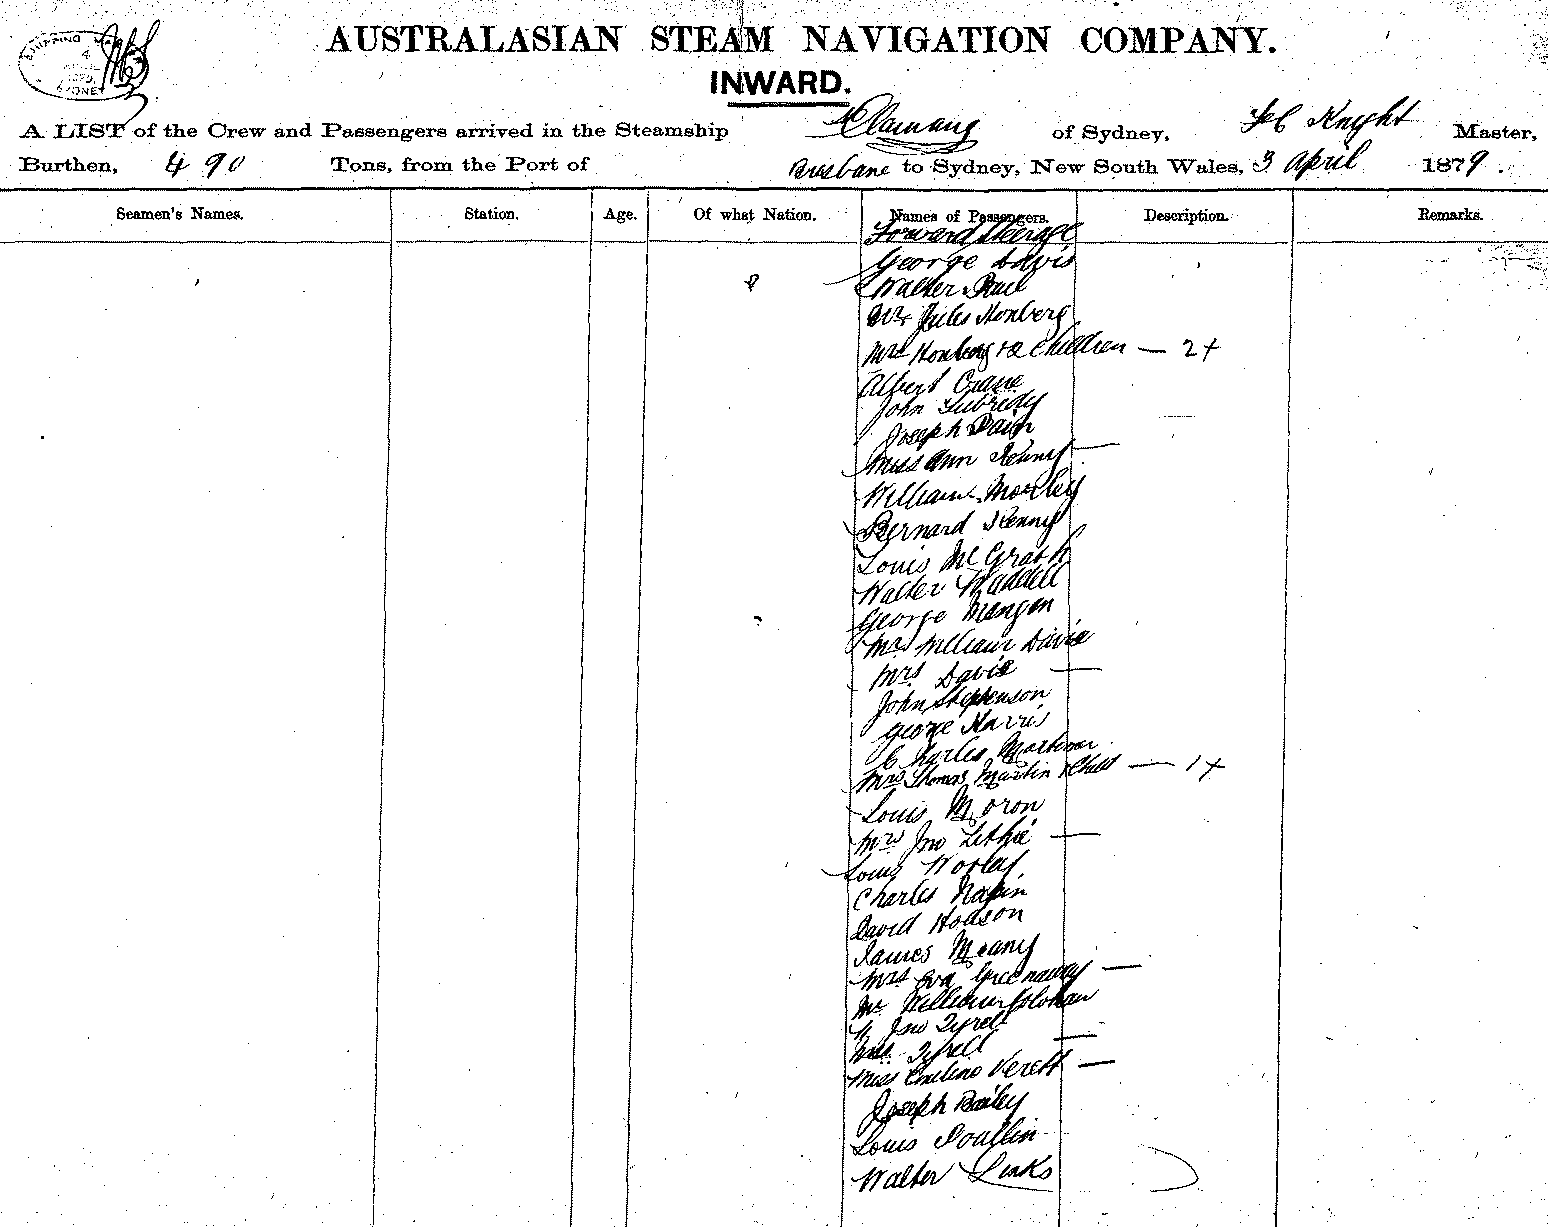 SHIPPING
SYDNEY
AUSTRALASIAN STEAM NAVIGATION COMPANY.
INWARD.
A LIST of the Crew and Passengers arrived in the Steamship of Sydney, Knight Master,
Burthen, 490 Tons, from the Port of Brisbane to Sydney, New South Wales, 3 April 1879.
Seamen's Names. Station. Age. Of what Nation. Names of Passengers. Description. Remarks.
Forward Steerage
George Davis
Walter
Mr Jules Honberg
Mrs Honberg + 2 Children — 2 +
Albert Crane
John Subridy
Joseph
Miss Ann Kenny —
William Morley
Bernard Kenny
Louis McGrath
Walter Waddell
George Mangan
Mr William Davis
Mrs Davis —
John Stephenson
George Harris
Charles
Mrs Thomas Martin & Child — 1 +
Louis Moron
Mrs Jno Lethie —
Louis Worley
Charles Napin
David Hodson
James Meany
Mrs Eva Greenaway —
Mr William
" Jno Tyrell
Mrs Tyrell —
Miss Emeline Verett —
Joseph Bailey
Louis
Walter Links